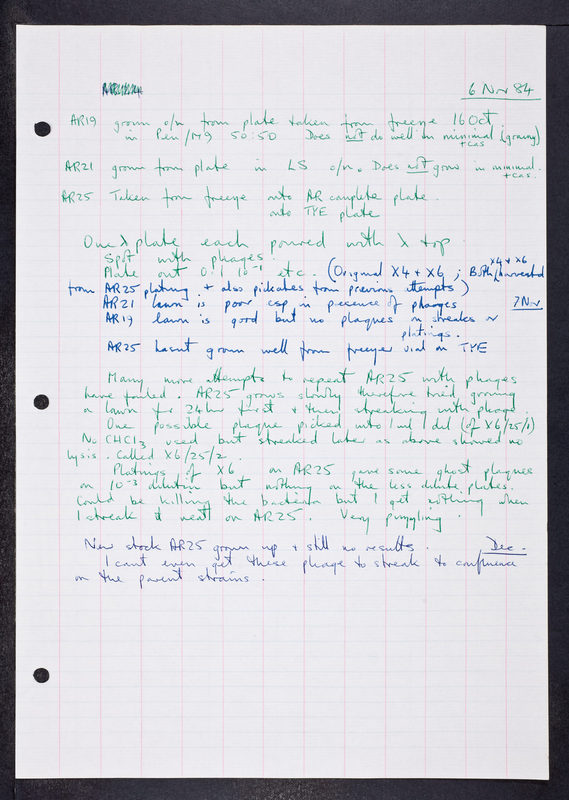 6 Nov 84
AR19 grown o/n from plate taken from freeze 16 Oct
in Pen/M9 50:50 Does not do well in minimal (growing)
+ cas
AR21 grown from plate in LS o/n. Does not grow in minimal.
+ cas.
AR25 Taken from freeze onto AR complete plate.
onto TYE plate
One λ plate each poured with λ top.
Spot with phages.
Plate out 0.1 10⁻¹ etc. (Original X4 + X6 ; Both X4 + X6 harvested
from AR25 plating + also pickates from previous attempts)
AR21 lawn is poor esp in presence of phages 7 Nov
AR19 lawn is good but no plaques on streaks or
platings.
AR25 hasnt grown well from freezer vial on TYE
Many more attempts to repeat AR25 with phages
have failed. AR25 grows slowly therefore tried growing
a lawn for 24hr first + then streaking with phage.
One possible plaque picked into 1ml λ dil (of X6/25/1)
No CHCl₃ used but streaked later as above showed no
lysis. Called X6/25/2.
Platings of X6 on AR25 gave some ghost plaques
on 10⁻³ dilution but nothing on the less dilute plates.
Could be killing the bacteria but I get nothing when
I streak it neat on AR25. Very puzzling.
New stock AR25 grown up + still no results. Dec.
I cant even get these phage to streak to confluence
on the parent strains.